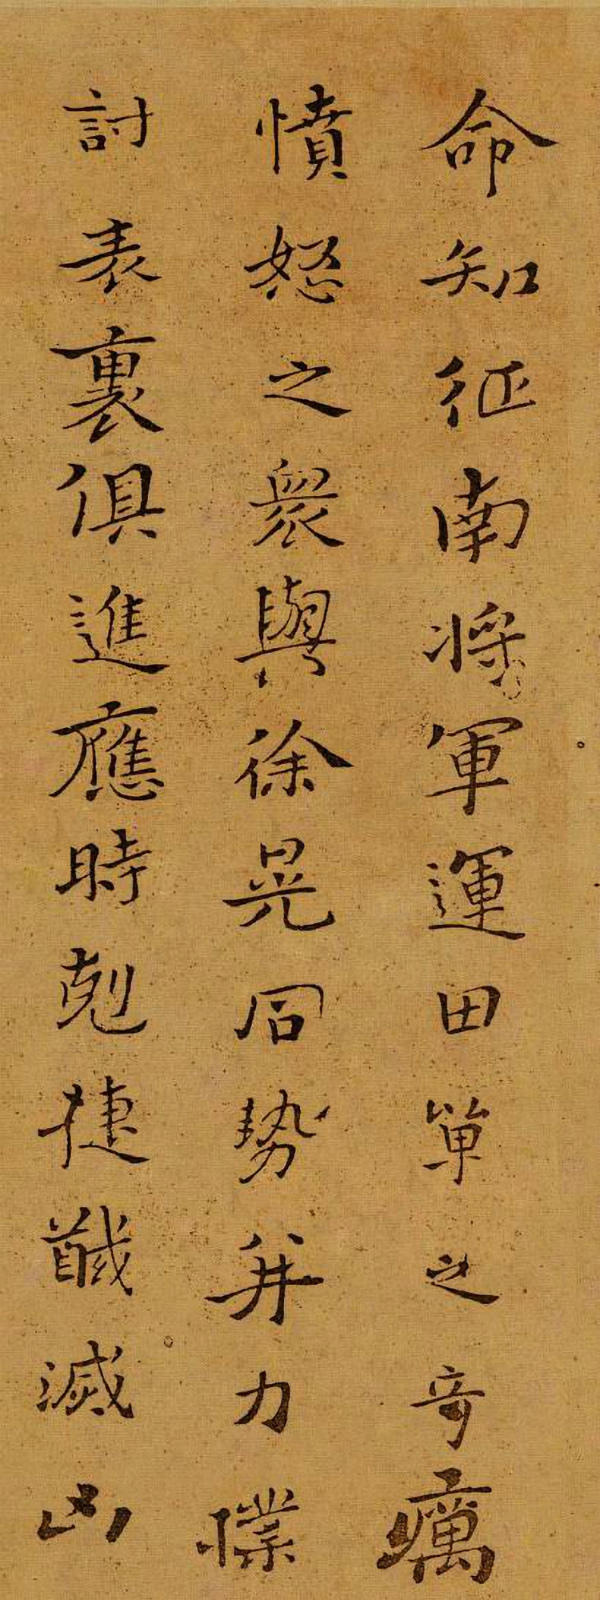 命知征南将軍運田單之奇厲
憤怒之衆與徐晃同势并力撲
討表裏俱進應時剋捷馘滅凶